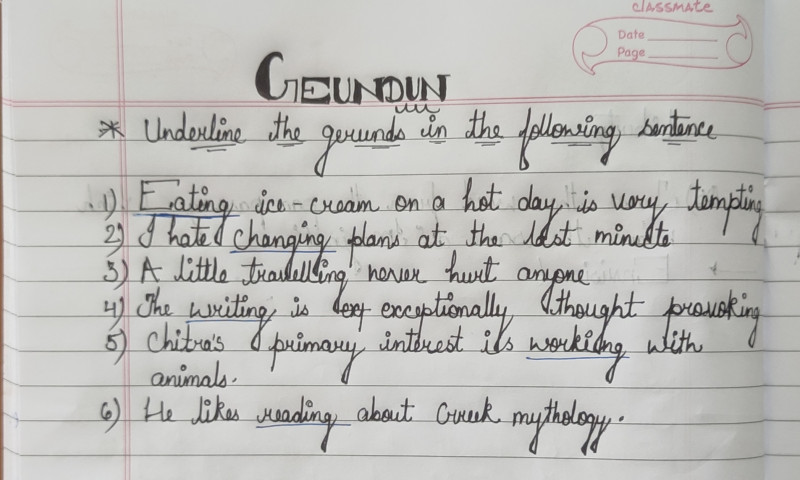 classmate
Date
Page
GEUNDUN
* Underline the gerunds in the following sentence
1) Eating ice-cream on a hot day is very tempting
2) I hate changing plans at the last minute
3) A little travelling never hurt anyone
4) The writing is exceptionally thought provoking
5) Chitra's primary interest is working with
animals.
6) He likes reading about Greek mythology.